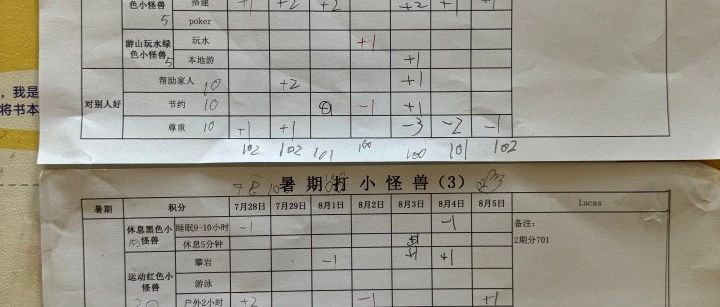 色小怪兽 搭建 +1 +2 +2 +2 +1 +1
5 poker
游山玩水绿 玩水 +1
色小怪兽 5 本地游 +1
，我是
将书本
帮助家人 10 +2 +1
对别人好 节约 10 -1 +1
尊重 10 +1 +1 -3 -2 -1
102 102 101 100 100 101 102
暑期打小怪兽（3）
暑期 积分 7月28日 7月29日 8月1日 8月2日 8月3日 8月4日 8月5日 Lucas
休息黑色小 睡眠9-10小时 -1 -1 备注：
怪兽 休息5分钟 2期分701
攀岩 -1 +1 +1
运动红色小 游泳
怪兽
20 户外2小时 +2 -1 +1